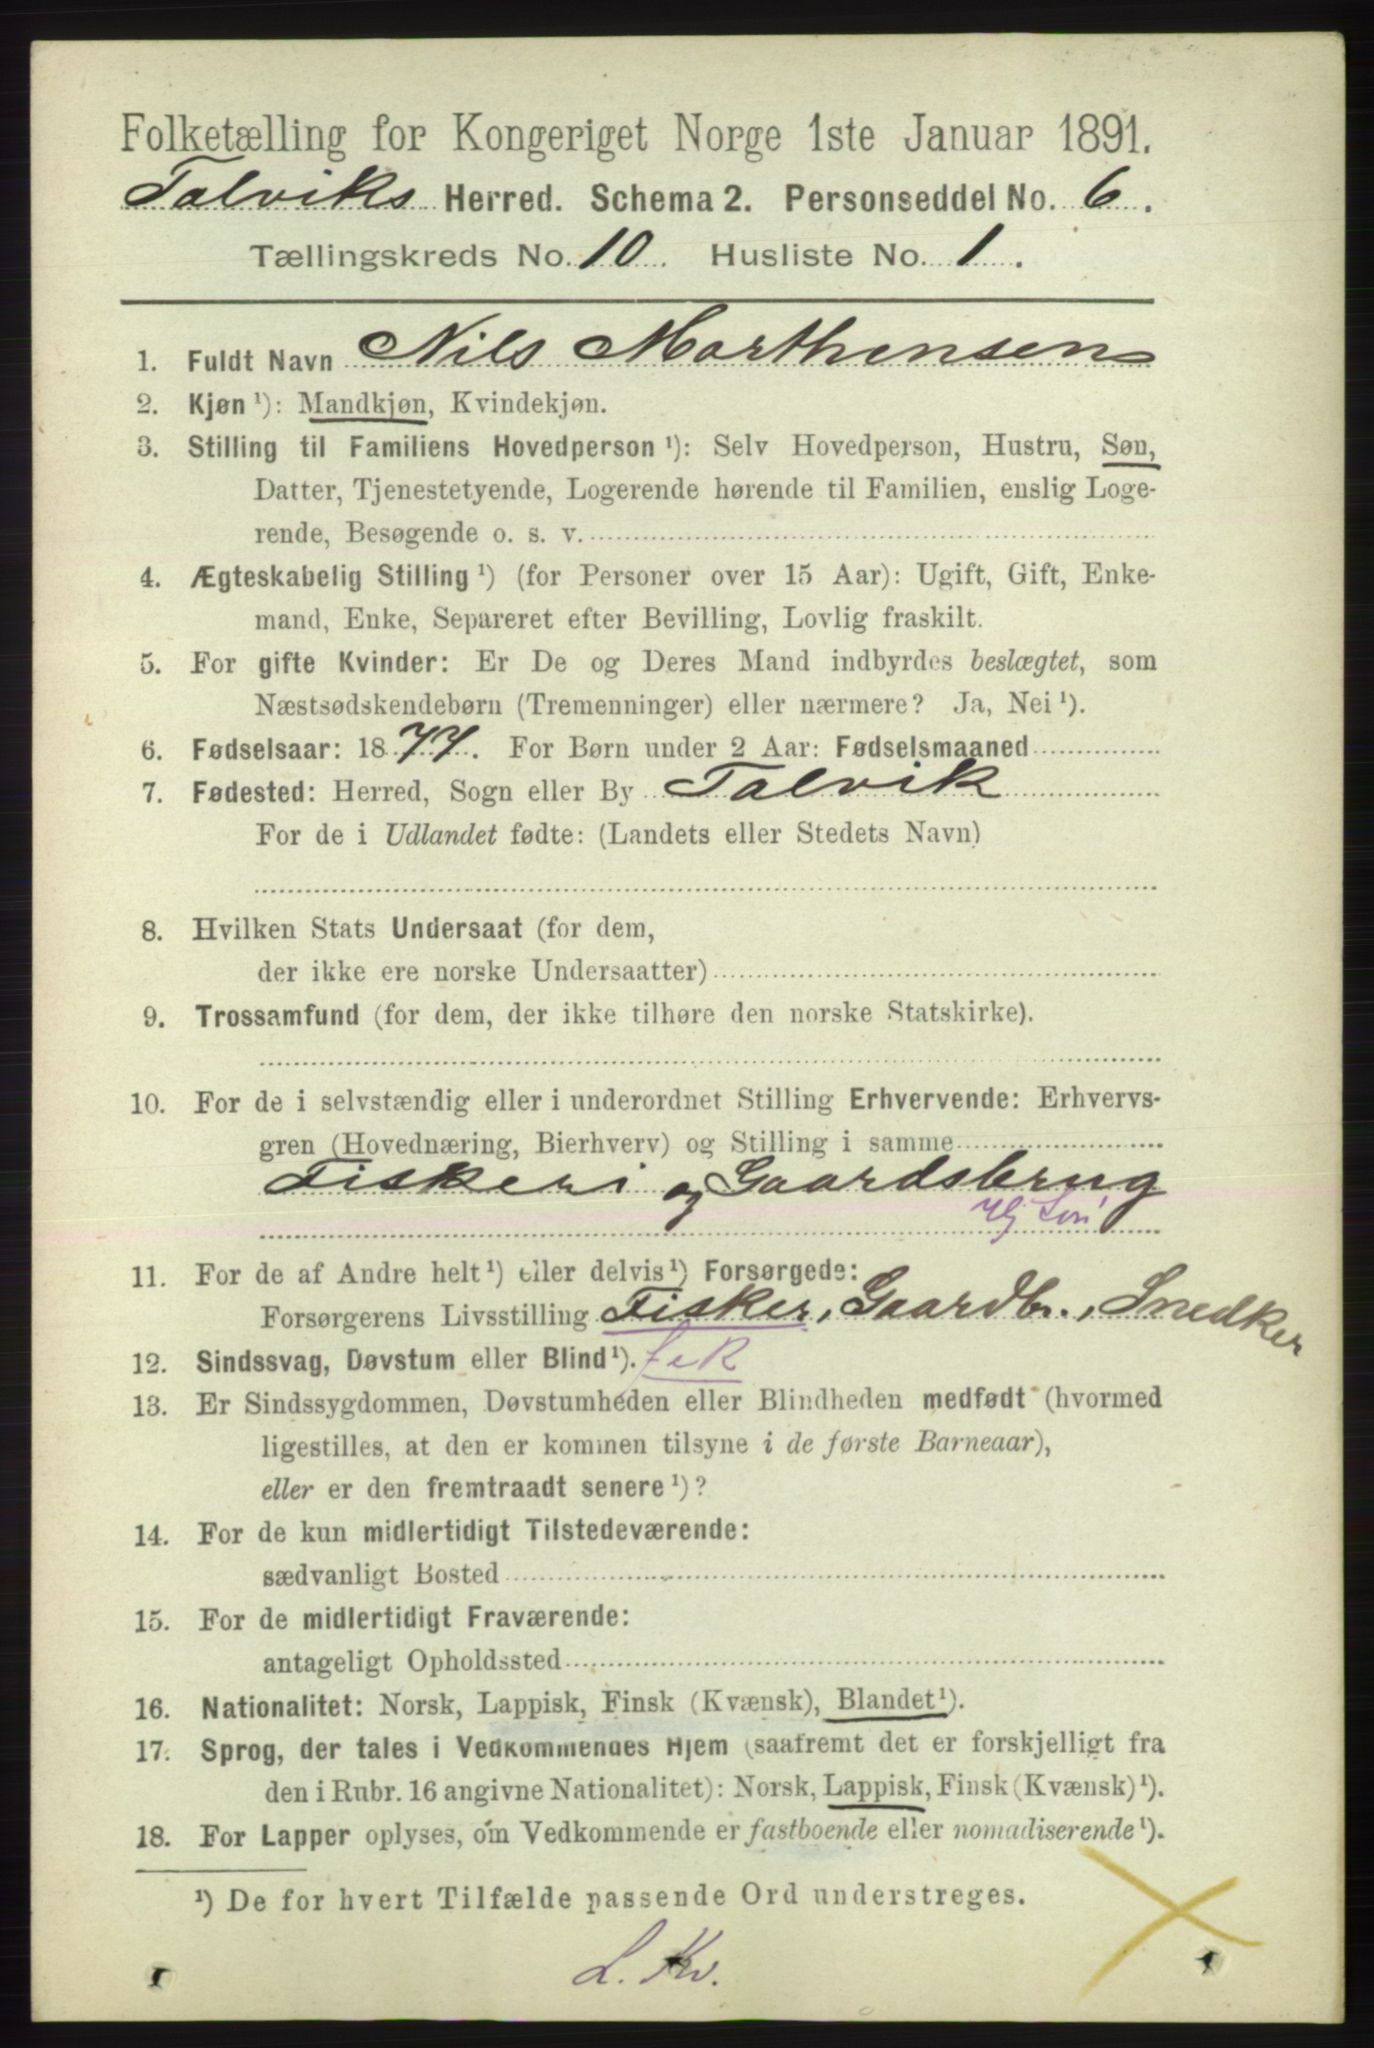 Folketælling for Kongeriget Norge 1ste Januar 1891.
Talviks Herred. Schema 2. Personseddel No. 6.
Tællingskreds No. 10. Husliste No. 1.
1. Fuldt Navn Nils Marthensen
2. Kjøn ¹): Mandkjøn, Kvindekjøn.
3. Stilling til Familiens Hovedperson ¹): Selv Hovedperson, Hustru, Søn,
Datter, Tjenestetyende, Logerende hørende til Familien, enslig Loge-
rende, Besøgende o. s. v.
4. Ægteskabelig Stilling ¹) (for Personer over 15 Aar): Ugift, Gift, Enke-
mand, Enke, Separeret efter Bevilling, Lovlig fraskilt.
5. For gifte Kvinder: Er De og Deres Mand indbyrdes beslægtet, som
Næstsødskendebørn (Tremenninger) eller nærmere? Ja, Nei ¹).
6. Fødselsaar: 1877. For Børn under 2 Aar: Fødselsmaaned
7. Fødested: Herred, Sogn eller By Talvik
For de i Udlandet fødte: (Landets eller Stedets Navn)
8. Hvilken Stats Undersaat (for dem,
der ikke ere norske Undersaatter)
9. Trossamfund (for dem, der ikke tilhøre den norske Statskirke).
10. For de i selvstændig eller i underordnet Stilling Erhvervende: Erhvervs-
gren (Hovednæring, Bierhverv) og Stilling i samme
Fiskeri og Gaardsbrug
11. For de af Andre helt ¹) eller delvis ¹) Forsørgede:
Forsørgerens Livsstilling Fisker, Gaardbr., Snedker
12. Sindssvag, Døvstum eller Blind ¹).
13. Er Sindssygdommen, Døvstumheden eller Blindheden medfødt (hvormed
ligestilles, at den er kommen tilsyne i de første Barneaar),
eller er den fremtraadt senere ¹)?
14. For de kun midlertidigt Tilstedeværende:
sædvanligt Bosted
15. For de midlertidigt Fraværende:
antageligt Opholdssted
16. Nationalitet: Norsk, Lappisk, Finsk (Kvænsk), Blandet ¹).
17. Sprog, der tales i Vedkommendes Hjem (saafremt det er forskjelligt fra
den i Rubr. 16 angivne Nationalitet): Norsk, Lappisk, Finsk (Kvænsk) ¹).
18. For Lapper oplyses, om Vedkommende er fastboende eller nomadiserende ¹).
¹) De for hvert Tilfælde passende Ord understreges.
L. Kv.